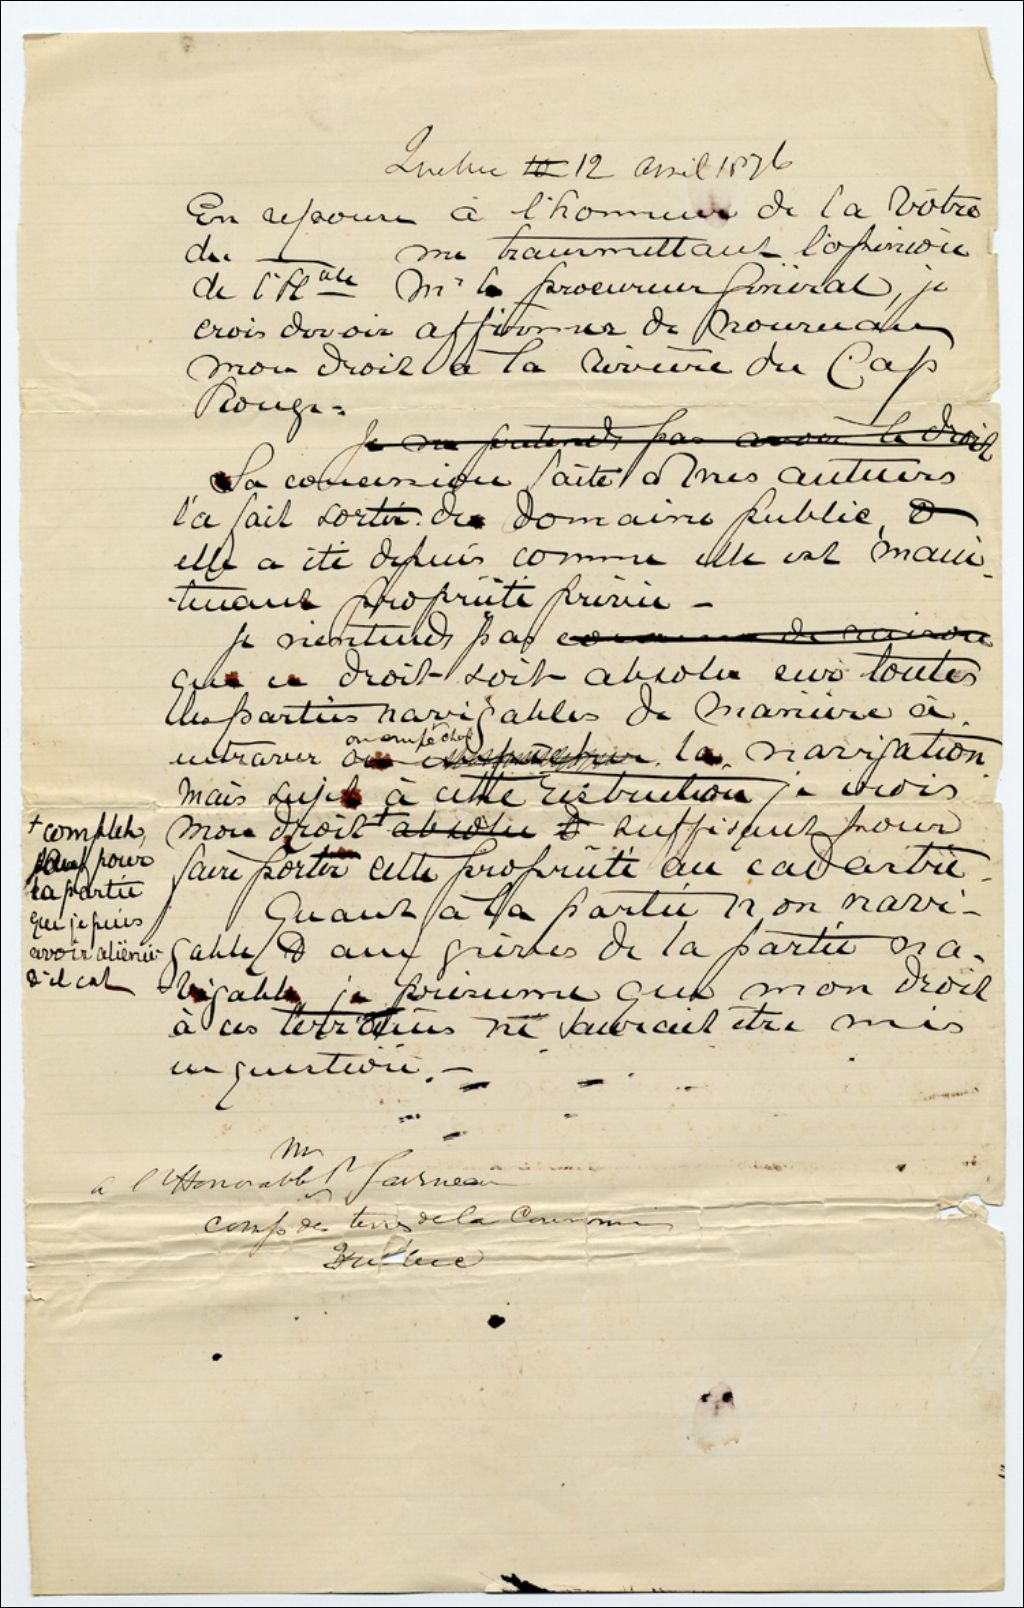 Quebec 10 12 avril 1876
En reponse à l'honneur de la Vôtre
du me transmettant l'opinion
de l'Hble Mr le procureur Général, je
crois devoir affirmer de nouveau
mon droit à la rivière du Cap
Rouge.
Je ne prétends pas avoir le droit
La concession faite à mes auteurs
l'a fait sortir du domaine public, &
elle a été depuis comme elle est main-
tenant propriété privée -
Je n'entends pas comme de raison
que ce droit soit absolu sur toutes
les parties navigables de manière à
ou empêcher
entraver ou la navigation
mais sujet à cette restriction je crois
mon droit + absolu & suffisant pour
faire porter cette propriété au cadastre -
+ complet,
sauf pour
la partie
que je puis
avoir aliénée
s'il est
Quant à la partie non navi-
gable & aux grèves de la partie na-
vigable je présume que mon droit
à ces terrains ne saurait être mis
en question. -
Mr
a l'Honorable P Garneau
Comr des terres de la Couronne
Québec